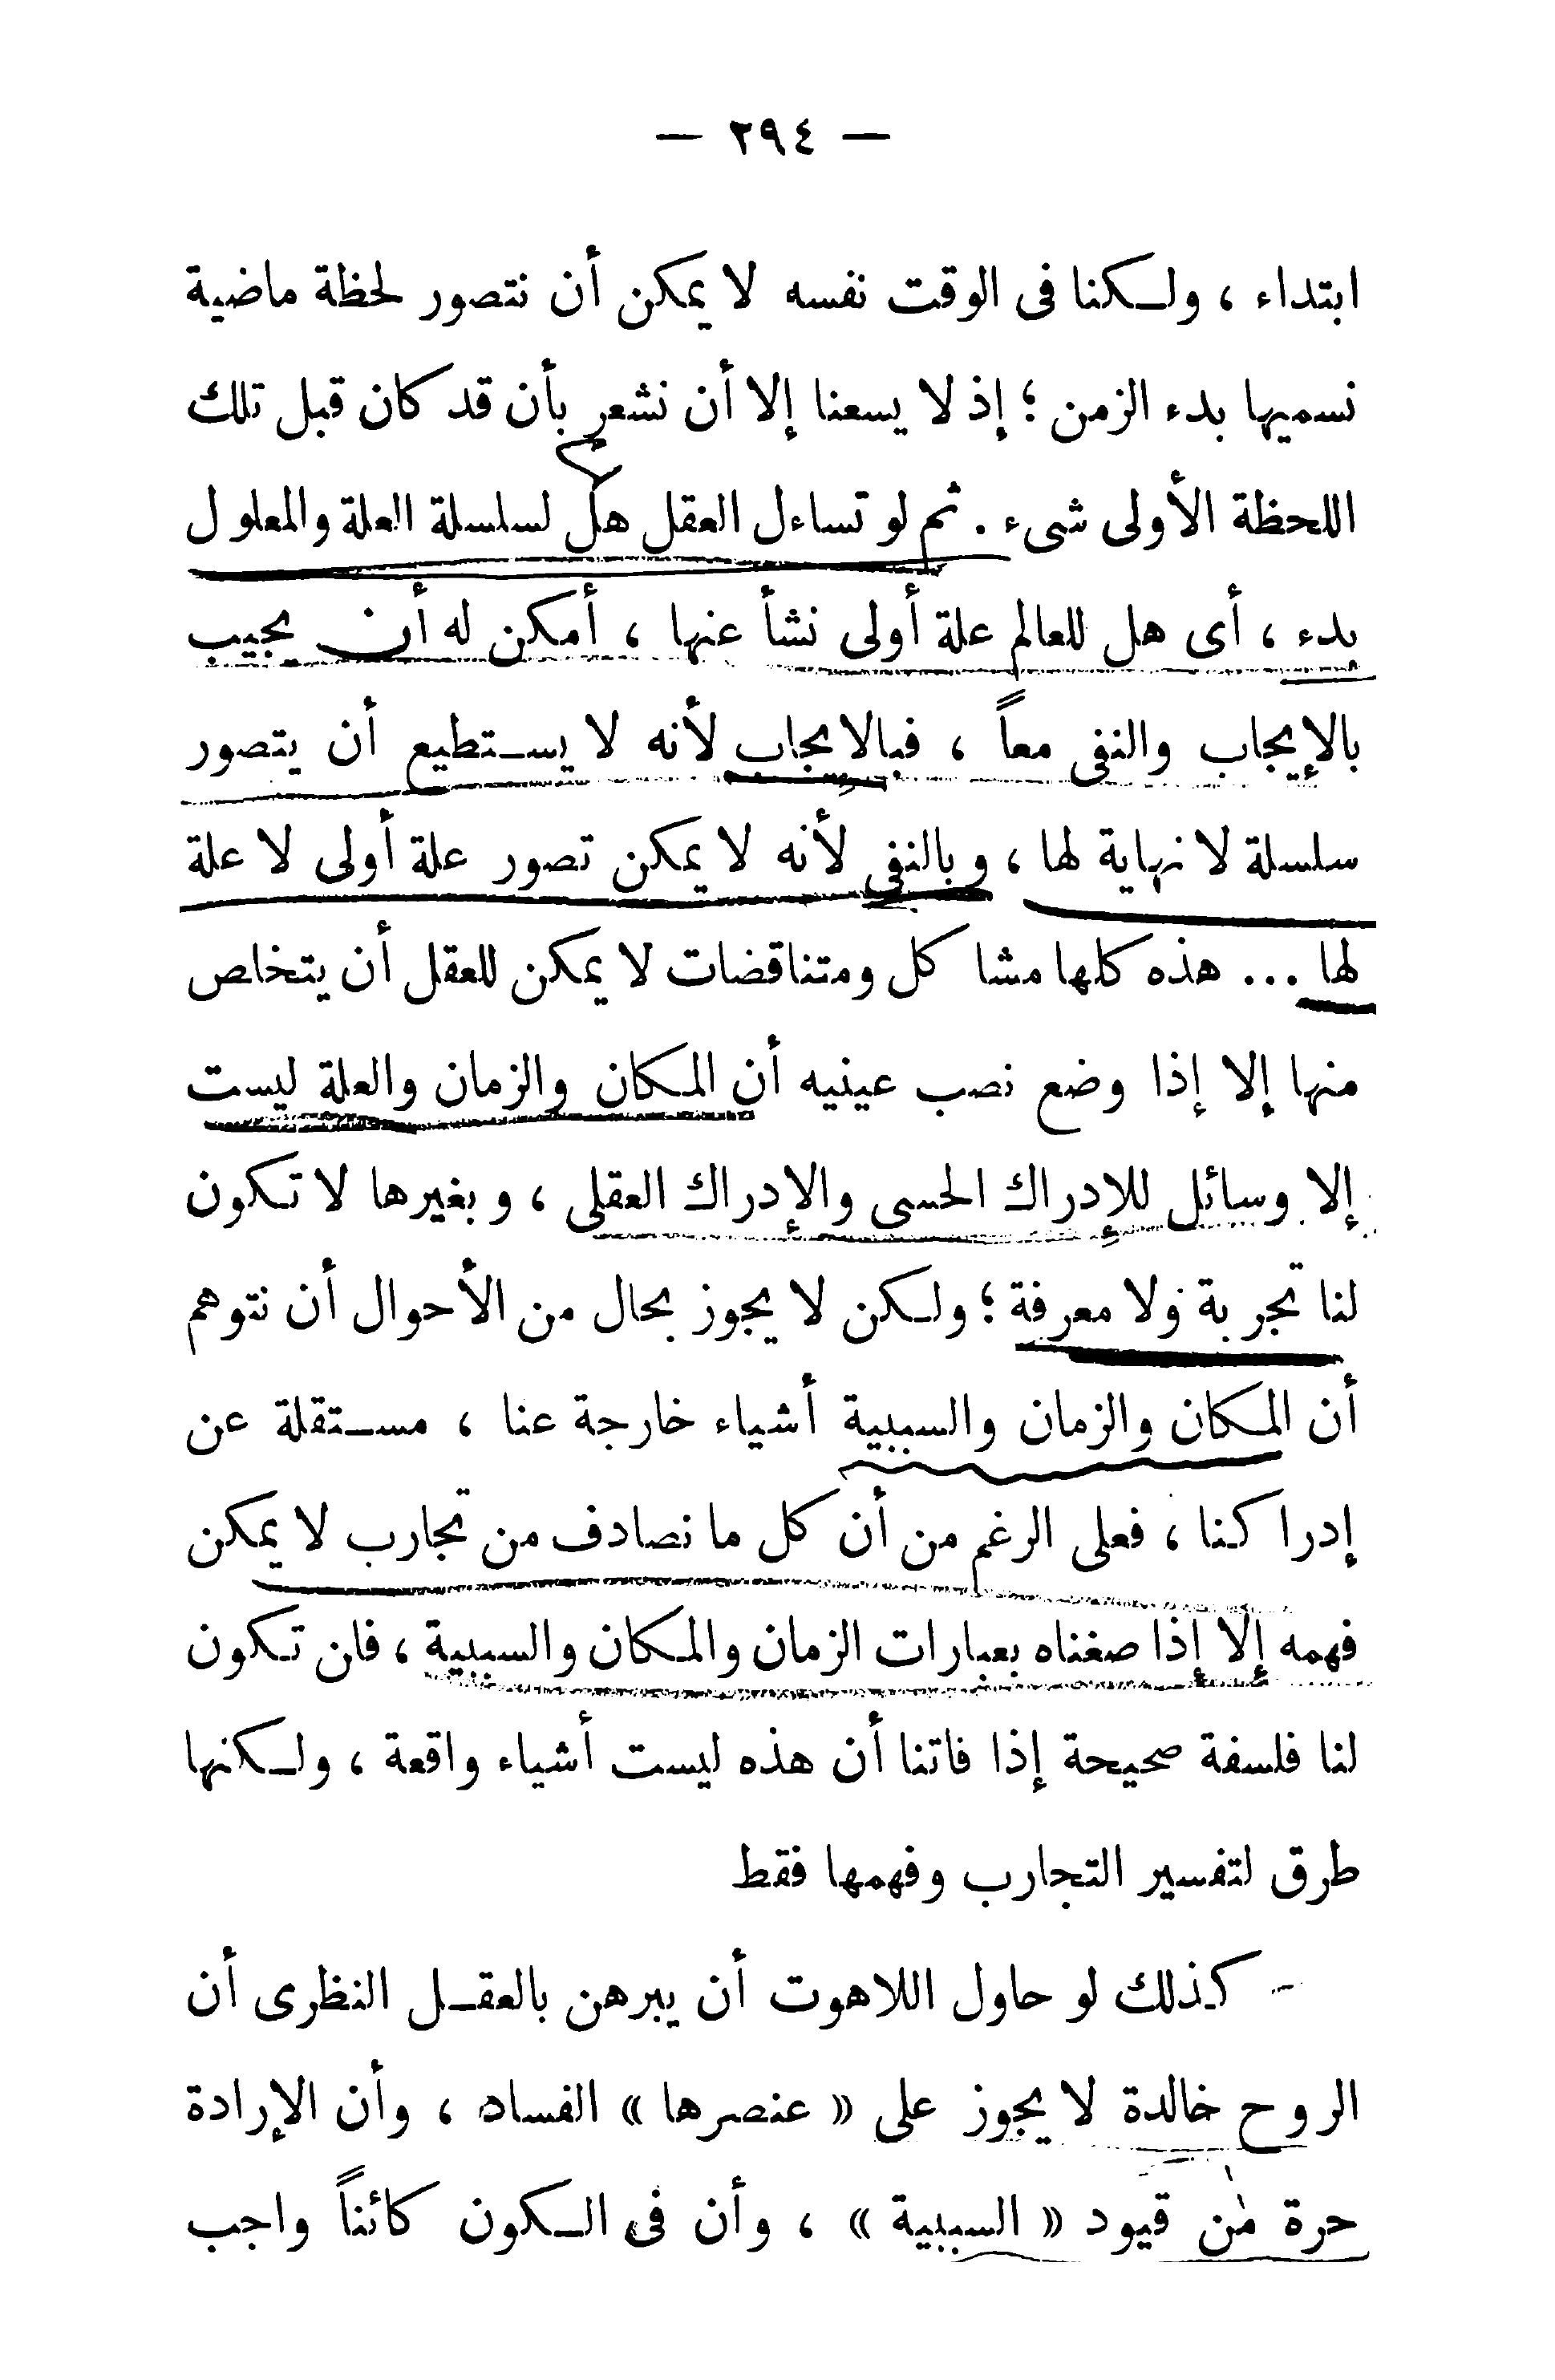 — ٢٩٤ —
ابتداء ، ولكنا فى الوقت نفسه لا يمكن أن نتصور لحظة ماضية
نسميها بدء الزمن ؛ إذ لا يسعنا إلا أن نشعر بأن قد كان قبل تلك
اللحظة الأولى شىء . ثم لو تساءل العقل هل لسلسلة العلة والمعلول
بدء ، أى هل للعالم علة أولى نشأ عنها ، أمكن له أن يجيب
بالإيجاب والنفى معاً ، فبالايجاب لأنه لا يستطيع أن يتصور
سلسلة لا نهاية لها ، وبالنفى لأنه لا يمكن تصور علة أولى لا علة
لها ... هذه كلها مشاكل ومتناقضات لا يمكن للعقل أن يتخلص
منها إلا إذا وضع نصب عينيه أن المكان والزمان والعلة ليست
إلا وسائل للإدراك الحسى والإدراك العقلى ، وبغيرها لا تكون
لنا تجربة ولا معرفة ؛ ولكن لا يجوز بحال من الأحوال أن نتوهم
أن المكان والزمان والسببية أشياء خارجة عنا ، مستقلة عن
إدراكنا ، فعلى الرغم من أن كل ما نصادف من تجارب لا يمكن
فهمه إلا إذا صغناه بعبارات الزمان والمكان والسببية ، فلن تكون
لنا فلسفة صحيحة إذا فاتنا أن هذه ليست أشياء واقعة ، ولكنها
طرق لتفسير التجارب وفهمها فقط
كذلك لو حاول اللاهوت أن يبرهن بالعقل النظرى أن
الروح خالدة لا يجوز على « عنصرها » الفساد ، وأن الإرادة
حرة من قيود « السببية » ، وأن فى الكون كائناً واجب